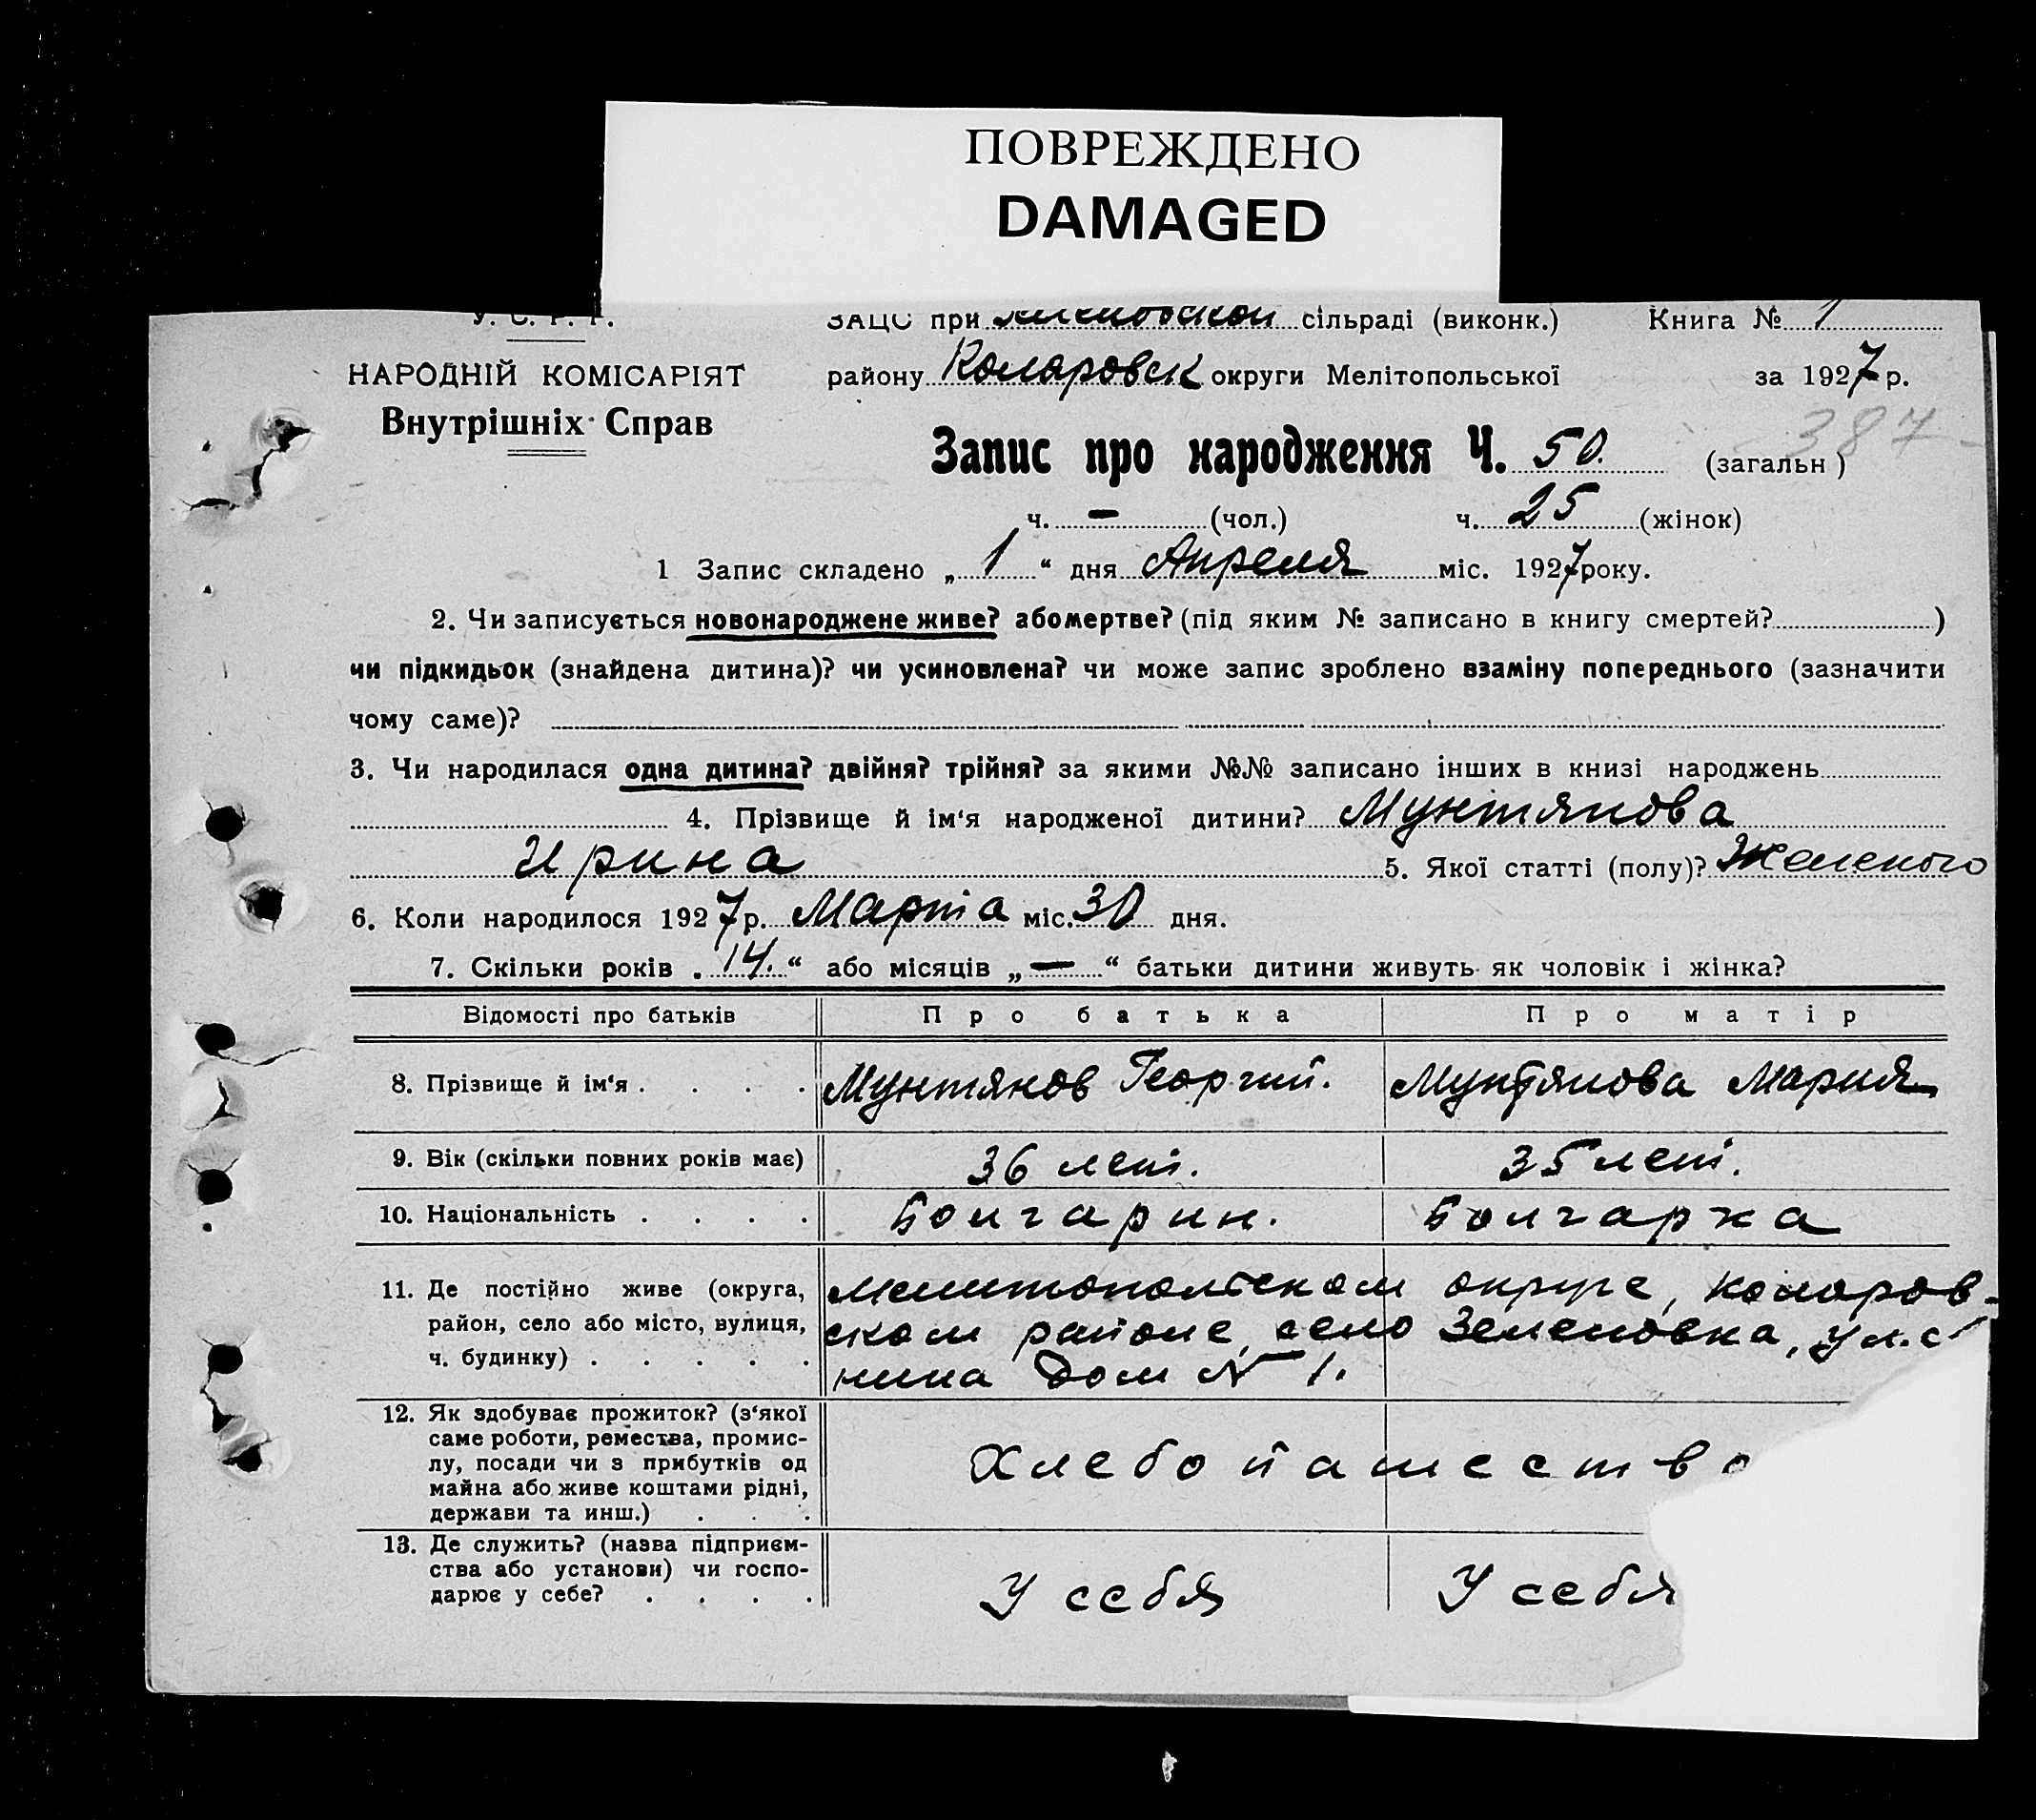 ПОВРЕЖДЕНО
DAMAGED
У. С. Р. Р.
ЗАЦС при сільраді (виконк.) Книга № 1
НАРОДНІЙ КОМІСАРІЯТ району Коларовск округи Мелітопольської за 1927 р.
Внутрішніх Справ
387
Запис про народження Ч. 50. (загальн)
ч. — (чол.) ч. 25 (жінок)
1 Запис складено „ 1 “ дня Апреля міс. 1927 року.
2. Чи записується новонароджене живе? або мертве? (під яким № записано в книгу смертей? )
чи підкидьок (знайдена дитина)? чи усиновлена? чи може запис зроблено взаміну попереднього (зазначити
чому саме)?
3. Чи народилася одна дитина? двійня? трійня? за якими №№ записано інших в книзі народжень
4. Прізвище й ім‘я народженої дитини? Мунтянова
Ирина 5. Якої статті (полу)? Женского
6. Коли народилося 1927 р. Марта міс. 30 дня.
7. Скільки років „ 14. “ або місяців „ — “ батьки дитини живуть як чоловік і жінка?
Відомості про батьків Про батька Про матір
8. Прізвище й ім‘я . . . . Мунтянов Георгий. Мунтянова Мария
9. Вік (скільки повних років має) 36 лет. 35 лет.
10. Національність . . . . Болгарин. Болгарка
11. Де постійно живе (округа, Мелитопольском округе, Коларов-
район, село або місто, вулиця, ском районе, село Зеленовка, ул.
ч. будинку) . . . . . нина Дом № 1.
12. Як здобуває прожиток? (з‘якої
саме роботи, ремества, промис-
лу, посади чи з прибутків од Хлебопашество
майна або живе коштами рідні,
держави та инш.) . . .
13. Де служить? (назва підприєм-
ства або установи) чи госпо-
дарює у себе? . . . . У себя У себя